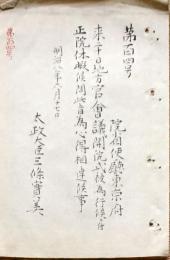 第百四号
院省使庁東京府
来ル廿日地方官会議開院式被為行候ニ付
正院休暇候条此旨為心得相達候事
明治八年六月十七日
太政大臣三條實美